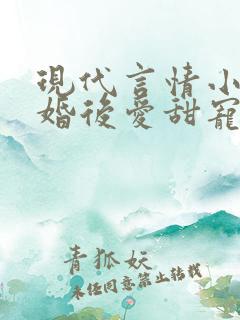 現代言情小
婚後愛甜寵
青狐妖
未任同意禁止转载